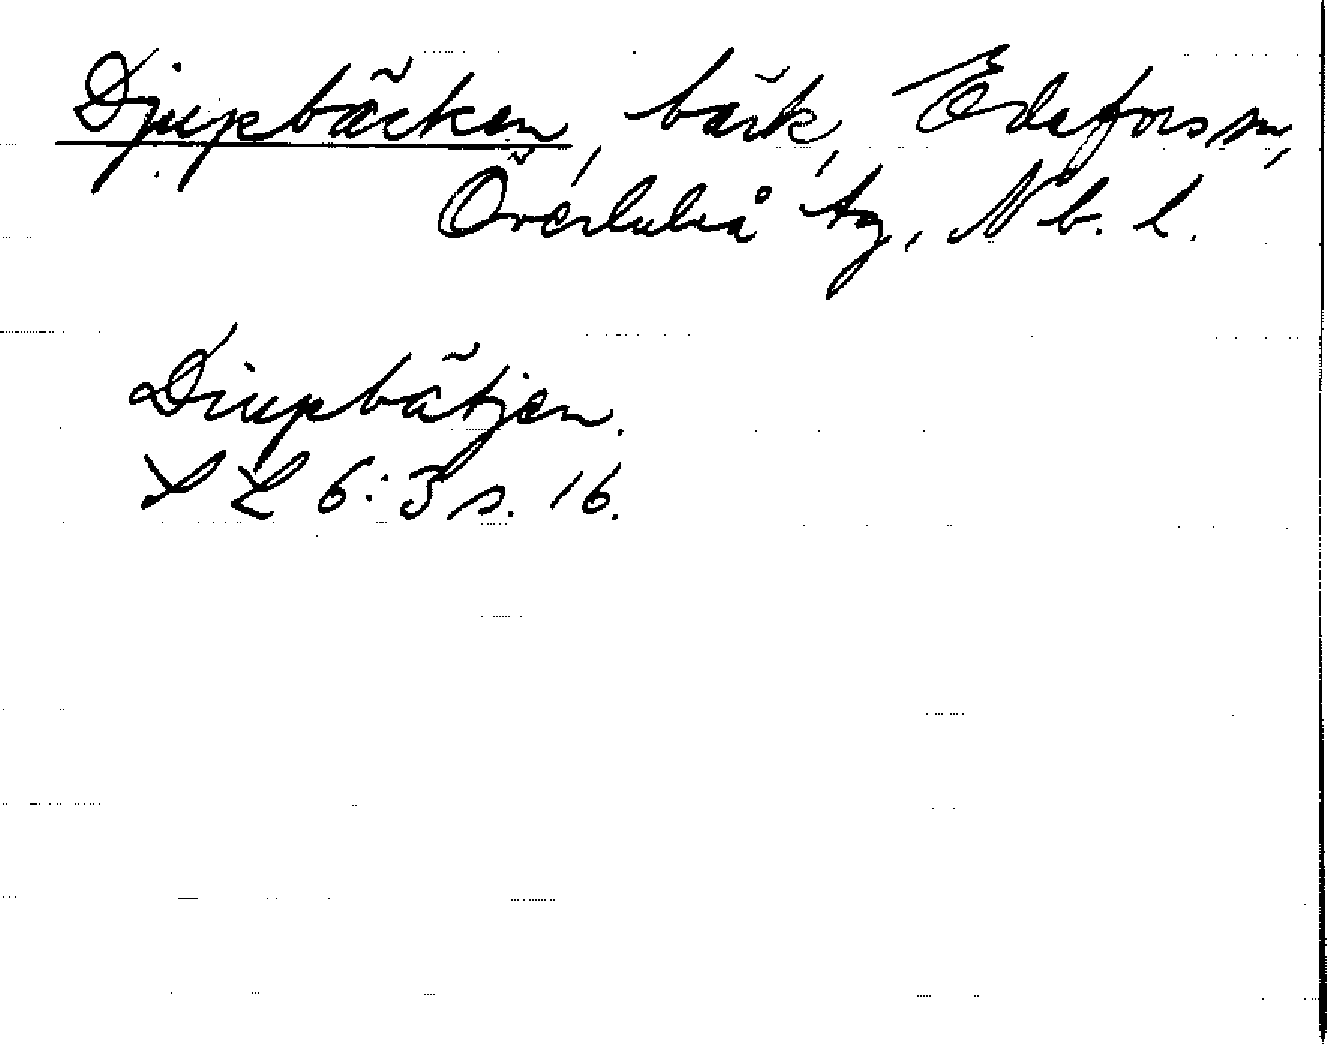 Djupbäcken, bäck, Edefors sn,
Överluleå tg, Nb. l.
Diupbätjen.
LL 6:3 s. 16.